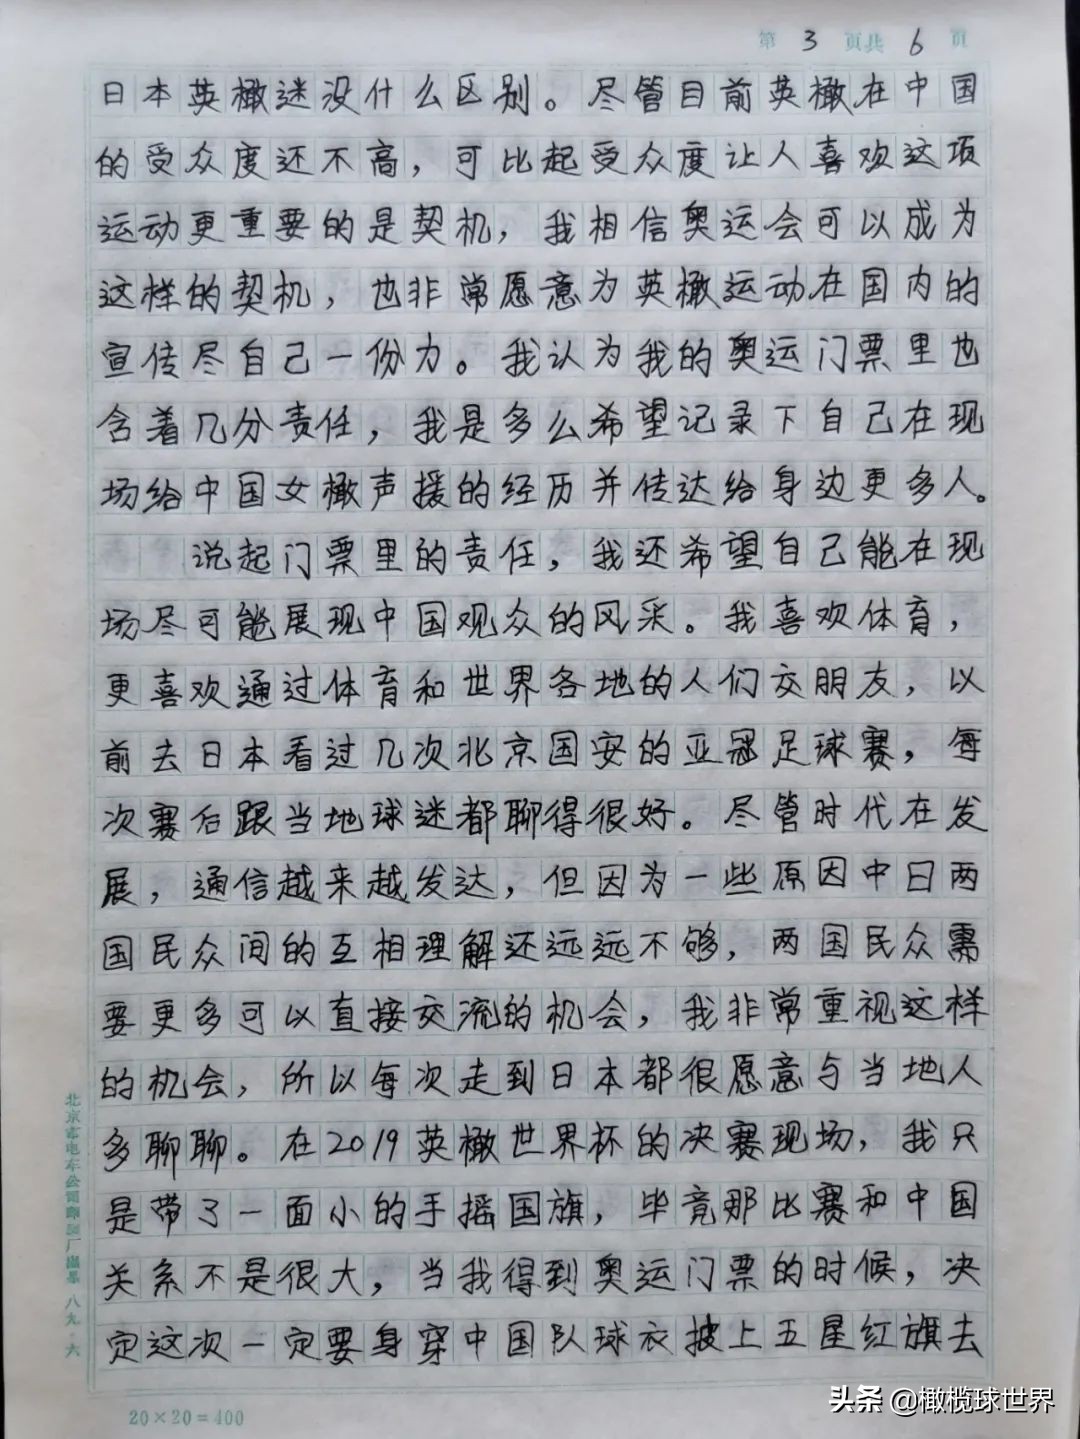 第 3 页共 6 页
日本英橄迷没什么区别。尽管目前英橄在中国
的受众度还不高，可比起受众度让人喜欢这项
运动更重要的是契机，我相信奥运会可以成为
这样的契机，也非常愿意为英橄运动在国内的
宣传尽自己一份力。我认为我的奥运门票里也
含着几分责任，我是多么希望记录下自己在现
场给中国女橄声援的经历并传达给身边更多人。
说起门票里的责任，我还希望自己能在现
场尽可能展现中国观众的风采。我喜欢体育，
更喜欢通过体育和世界各地的人们交朋友，以
前去日本看过几次北京国安的亚冠足球赛，每
次赛后跟当地球迷都聊得很好。尽管时代在发
展，通信越来越发达，但因为一些原因中日两
国民众间的互相理解还远远不够，两国民众需
要更多可以直接交流的机会，我非常重视这样
的机会，所以每次走到日本都很愿意与当地人
多聊聊。在2019英橄世界杯的决赛现场，我只
是带了一面小的手摇国旗，毕竟那比赛和中国
关系不是很大，当我得到奥运门票的时候，决
定这次一定要身穿中国队球衣披上五星红旗去
北京市电车公司印刷厂出品 八九·六
20×20=400
头条 @橄榄球世界